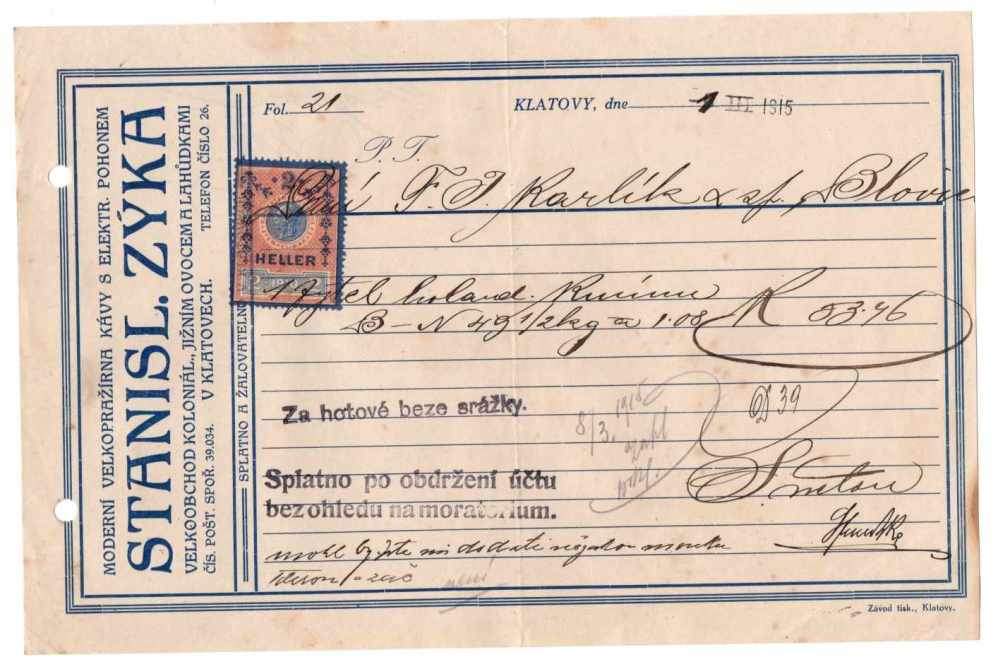 MODERNÍ VELKOPRAŽÍRNA KÁVY S ELEKTR. POHONEM
STANISL. ZÝKA
VELKOOBCHOD KOLONIÁL., JIŽNÍM OVOCEM A LAHŮDKAMI
ČÍS. POŠT. SPOŘ. 39.034. V KLATOVECH. TELEFON ČÍSLO 26.
SPLATNO A ŽALOVATELN
Fol. 21
KLATOVY, dne 1 III 1915
P. T.
F. J. Karlík & sp., Blovic
2
HELLER
1 pytel holand. kmínu
B-N 49 1/2 kg a 1·08 K 53·46
Za hotové beze srážky.
8/3. 1915
D 39
Splatno po obdržení účtu
bez ohledu na moratorium.
mohl by jste mi dodati nějakou mouku
není
Závod tisk., Klatovy.